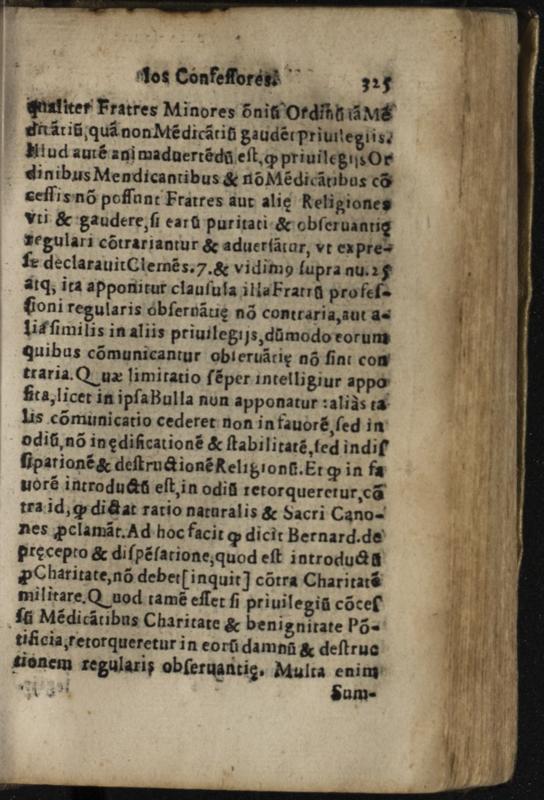 los Confessores. 325
qualiter Fratres Minores õniũ Ordinũ tã Mẽ
dicãtiũ, quã non Mẽdicãtiũ gaudẽt priuilegiis.
Illud autẽ animaduertẽdũ est, ꝙ priuilegijs Or
dinibus Mendicantibus & nõ Mẽdicãtibus cõ
cessis nõ possunt Fratres aut alię Religiones
vti & gaudere, si earũ puritati & obseruantię
regulari cõtrariantur & aduersãtur, vt expres-
se declarauit Clemẽs. 7. & vidimꝰ supra nu. 25
atq; ita apponitur clausula illa Fratrũ profes-
sioni regularis obseruãtię nõ contraria, aut a-
lia similis in aliis priuilegijs, dũmodo eorum
quibus cõmunicantur obseruãtię nõ sint con
traria. Quæ limitatio sẽper intelligiur appo
sita, licet in ipsa Bulla non apponatur : aliàs ta
lis cõmunicatio cederet non in fauorẽ, sed in
odiũ, nõ in ędificationẽ & stabilitatẽ, sed in dis
sipationẽ & destructionẽ Religionũ. Et ꝙ in fa
uorẽ introductũ est, in odiũ retorqueretur, cõ
tra id, ꝙ dictat ratio naturalis & Sacri Cano-
nes ꝓclamãt. Ad hoc facit ꝙ dicit Bernard. de
pręcepto & dispẽsatione, quod est introductũ
ꝓ Charitate, nõ debet [inquit] cõtra Charitatẽ
militare. Quod tamẽ esset si priuilegiũ cõces
sũ Mẽdicãtibus Charitate & benignitate Põ-
tificia, retorqueretur in eorũ damnũ & destruc
tionem regularis obseruantię. Multa enim
Sum-